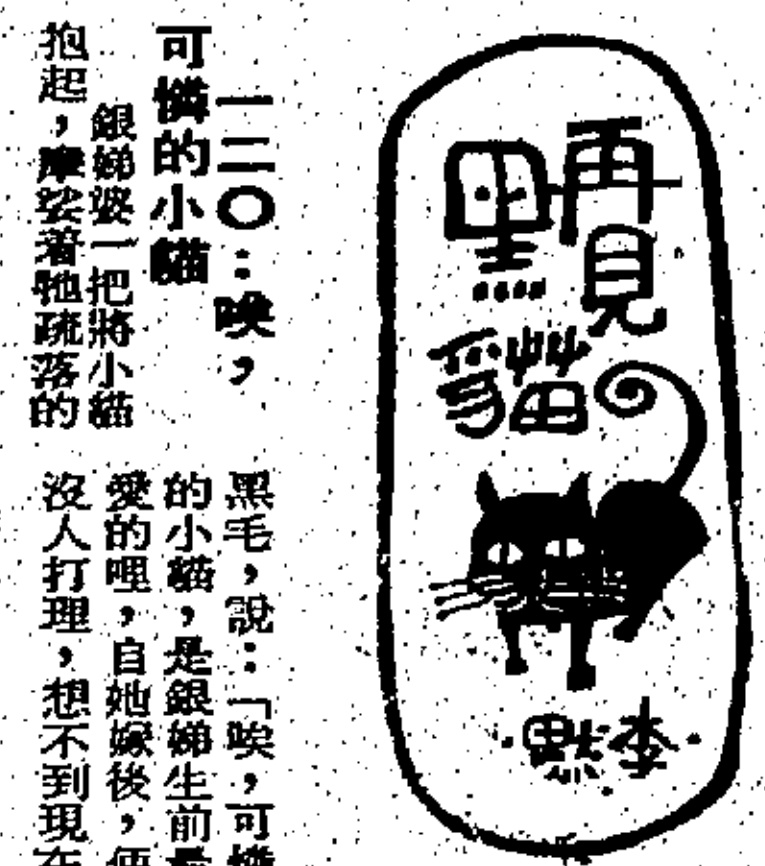 再見
黑貓
·李默·
一二〇：唉，
可憐的小貓
銀娣婆一把將小貓
抱起，摩娑着牠疏落的
黑毛，說：「唉，可憐
的小貓，是銀娣生前最
愛的哩，自她嫁後，便
沒人打理，想不到現在